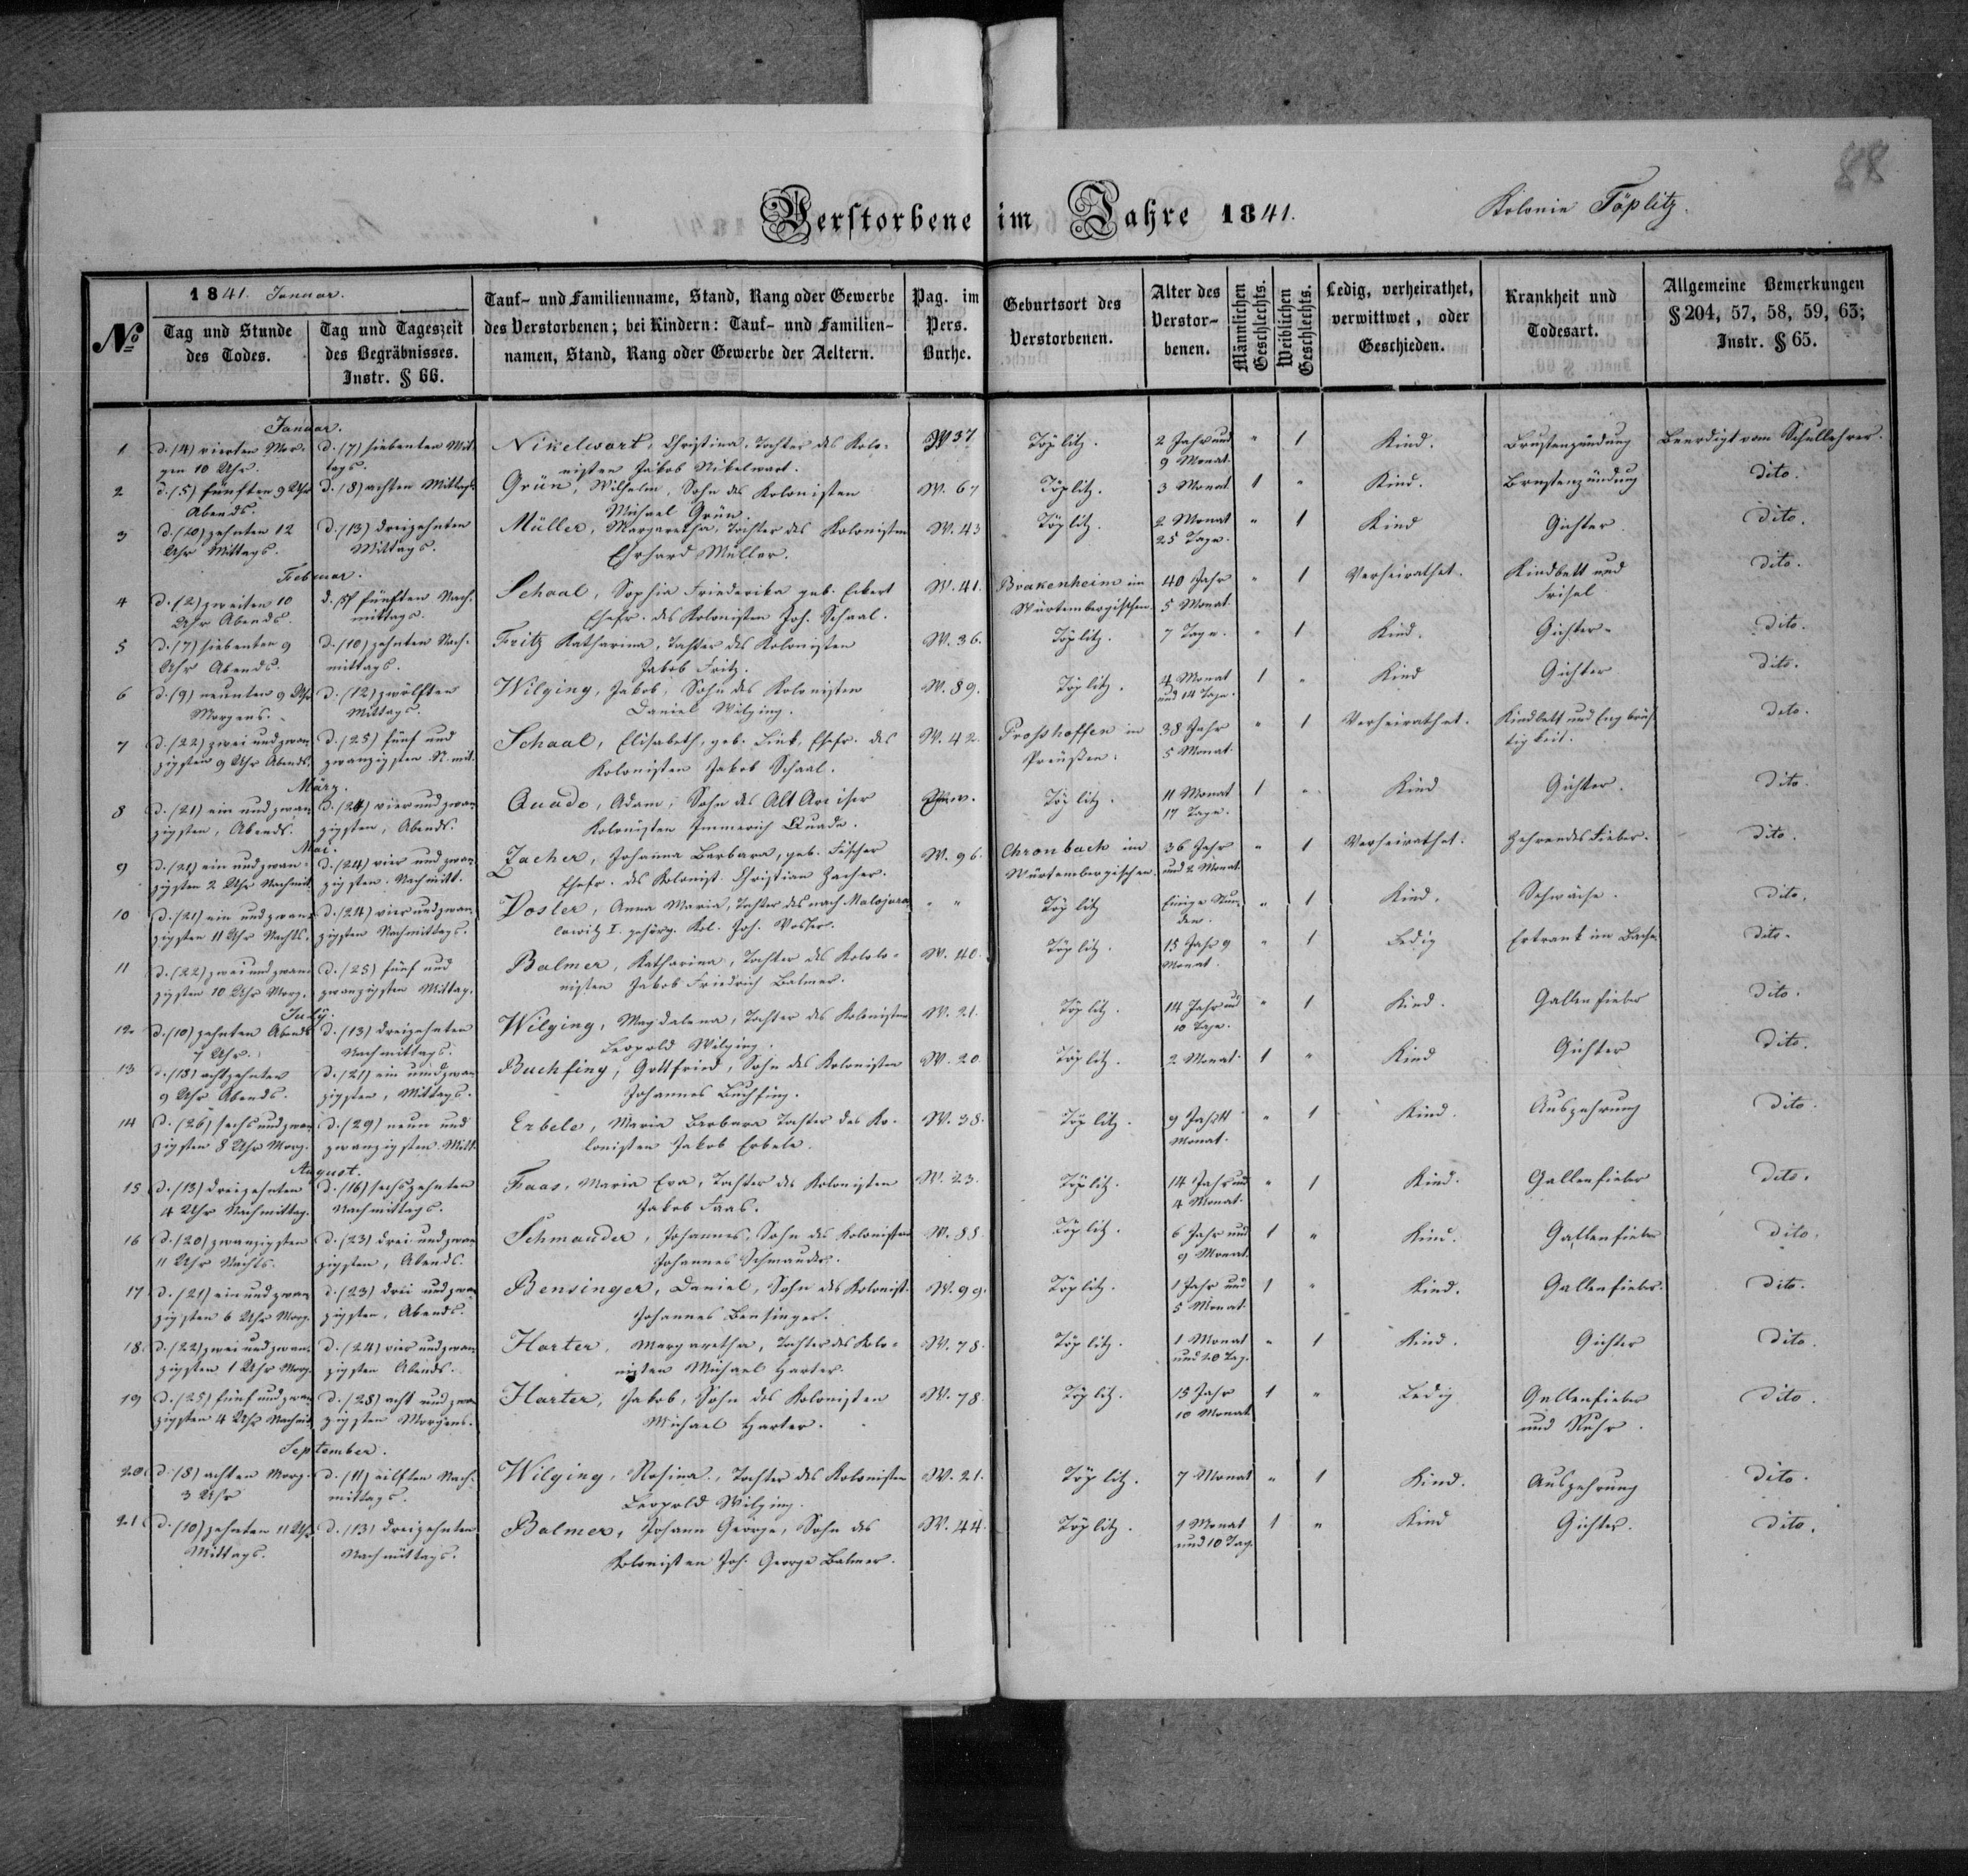 88
Verstorbene im Jahre 1841.
Kolonie Töplitz.
№
1841. Januar.
Tag und Stunde des Todes.
Tag und Tageszeit des Begräbnisses. Instr. § 66.
Tauf- und Familienname, Stand, Rang oder Gewerbe des Verstorbenen; bei Kindern: Tauf- und Familien-namen, Stand, Rang oder Gewerbe der Aeltern.
Pag. im Pers. Buche.
Geburtsort des Verstorbenen.
Alter des Verstor-benen.
Männlichen Geschlechts.
Weiblichen Geschlechts.
Ledig, verheirathet, verwittwet, oder Geschieden.
Krankheit und Todesart.
Allgemeine Bemerkungen § 204, 57, 58, 59, 63; Instr. § 65.
Januar.
1 d. (4) vierten Mor- d. (7) siebenten Mit- Nikelwart, Christina, Tochter des Kolo- W 37 Töplitz. 2 Jahr und " 1 Kind. Brustenzündung Beerdigt vom Schullehrer.
gen 10 Uhr. tags. nisten Jakob Nikelwart. 9 Monat.
2 d. (5) fünften 9 Uhr d. (8) achten Mittags Grün, Wilhelm, Sohn des Kolonisten W. 67 Töplitz. 3 Monat 1 " Kind. Brustenzündung dito.
Abends. Michael Grün.
3 d. (10) zehnten 12 d. (13) dreizehnten Müller, Margaretha, Tochter des Kolonisten W. 43 Töplitz. 2 Monat " 1 Kind Gichter dito.
Uhr Mittags. Mittags. Ehrhard Müller. 25 Tage.
Februar.
4 d. (2) zweiten 10 d. (5) fünften Nach- Schaal, Sophia Friederika geb. Eckert W. 41. Brakenheim im 40 Jahr " 1 Verheirathet. Kindbett und dito.
Uhr Abends. mittags. Ehefr. des Kolonisten Joh. Schaal. Würtembergischen. 5 Monat. Frisel
5 d. (7) siebenten 9 d. (10) zehnten Nach- Fritz Katharina, Tochter des Kolonisten W. 36. Töplitz. 7 Tage. " 1 Kind. Gichter. dito.
Uhr Abends. mittags. Jakob Fritz.
6 d. (9) neunten 9 Uhr d. (12) zwölften Wilging, Jakob, Sohn des Kolonisten W. 89. Töplitz. 4 Monat 1 " Kind Gichter dito.
Morgens. Mittags. Daniel Wilging. und 14 Tage.
7 d. (22) zwei und zwan- d. (25) fünf und Schaal, Elisabeth, geb. Fink, Ehefr. des W. 42. Proßhoffen in 38 Jahr " 1 Verheirathet. Kindbett und Engbrüs- dito.
zigsten 9 Uhr Abends. zwanzigsten N. mit. Kolonisten Jakob Schaal. Preußen. 5 Monat. tigkeit.
März.
8 d. (21) ein und zwan- d. (24) vier und zwan- Quado, Adam, Sohn des Alt Arciser Töplitz. 11 Monat 1 " Kind Gichter. dito.
zigsten, Abends. zigsten, Abends. Kolonisten Immerich Quado. 17 Tage.
Mai.
9 d. (21) ein und zwan- d. (24) vier und zwan- Zacher, Johanna Barbara, geb. Fischer W. 96. Chronbach im 36 Jahr " 1 Verheirathet. Zehrendes Fieber. dito.
zigsten 2 Uhr Nachmit. zigsten. Nachmitt. Ehefr. des Kolonist. Christian Zacher. Würtembergischen. und 2 Monat.
10 d. (21) ein und zwan- d. (24) vier und zwan- Vosler, Anna Maria, Tochter des nach Malojaros- " " Töplitz Einige Stun- " 1 Kind. Schwäche. dito.
zigsten 11 Uhr Nachts. zigsten Nachmittags. lawitz I. gehörig. Kol. Joh. Vosler. den.
11 d. (22) zwei und zwan- d. (25) fünf und Balmer, Katharina, Tochter des Kololo- W. 40. Töplitz. 15 Jahr 9 " 1 Ledig Ertrank im Bache. dito.
zigsten 10 Uhr Morg. zwanzigsten Mittag. nisten Jakob Friedrich Balmer. Monat.
July.
12 d. (10) zehnten Abends d. (13) dreizehnten Wilging, Magdalena, Tochter des Kolonisten W. 21. Töplitz. 14 Jahr und " 1 Kind. Gallenfieber dito.
7 Uhr. Nachmittags. Leopold Wilging. 10 Tage.
13 d. (18) achtzehnten d. (21) ein und zwan- Buchfing, Gottfried, Sohn des Kolonisten W. 20. Töplitz. 2 Monat. 1 " Kind Gichter dito.
9 Uhr Abends. zigsten, Mittags. Johannes Buchfing.
14 d. (26) sechs und zwan- d. (29) neun und Erbele, Maria Barbara Tochter des Ko- W. 38. Töplitz. 9 Jahr 11 " 1 Kind. Auszehrung dito.
zigsten 8 Uhr Morg. zwanzigsten Mitt. lonisten Jakob Erbele. Monat.
August.
15 d. (13) dreizehnten d. (16) sechszehnten Faas, Maria Eva, Tochter des Kolonisten W. 23. Töplitz. 14 Jahr und " 1 Kind. Gallenfieber dito.
4 Uhr Nachmittag. Nachmittags. Jakob Faas. 4 Monat.
16 d. (20) zwanzigsten d. (23) drei und zwan- Schmauder, Johannes, Sohn des Kolonisten W. 88. Töplitz. 6 Jahr und 1 " Kind. Gallenfieber dito.
11 Uhr Nachts. zigsten, Abends. Johannes Schmauder. 9 Monat.
17 d. (21) ein und zwan- d. (23) drei und zwan- Bensinger, Daniel, Sohn des Kolonist. W. 99. Töplitz. 1 Jahr und 1 " Kind. Gallenfieber. dito.
zigsten 6 Uhr Morg. zigsten, Abends. Johannes Bensinger. 5 Monat.
18. d. (22) zwei und zwan- d. (24) vier und zwan- Harter, Margaretha, Tochter des Kolo- W. 78. Töplitz. 1 Monat " 1 Kind. Gichter dito.
zigsten 1 Uhr Morg. zigsten Abends. nisten Michael Harter. und 20 Tag.
19 d. (25) fünf und zwan- d. (28) acht und zwan- Harter, Jakob, Sohn des Kolonisten W. 78. Töplitz. 15 Jahr 1 " Ledig Gallenfieber dito.
zigsten 4 Uhr Nachmit. zigsten Morgens. Michael Harter. 10 Monat und Ruhr.
September.
20. d. (8) achten Morg. d. (11) eilften Nach- Wilging, Rosina, Tochter des Kolonisten W. 21. Töplitz. 7 Monat " 1 Kind. Auszehrung dito.
3 Uhr mittags. Leopold Wilging.
21. d. (10) zehnten 11 Uhr d. (13) dreizehnten Balmer, Johann George, Sohn des W. 44. Töplitz. 1 Monat 1 " Kind Gichter. dito.
Mittags. Nachmittags. Kolonisten Joh. George Balmer. und 10 Tag.